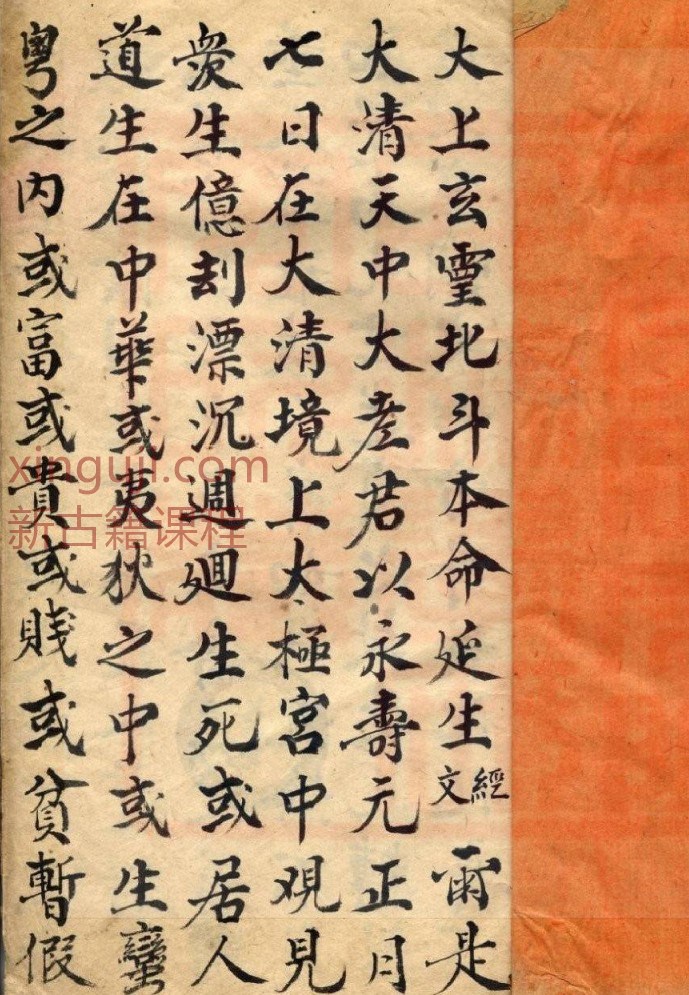 大上玄霊北斗本命延生經文 爾是
大清天中大老君以永壽元正月
七日在大清境上太極宮中覌見
衆生億刼漂沉週廻生死或居人
道生在中華或夷狄之中或生蠻
粤之内或富或貴或賤或貧暫假
xinguji.com
新古籍课程